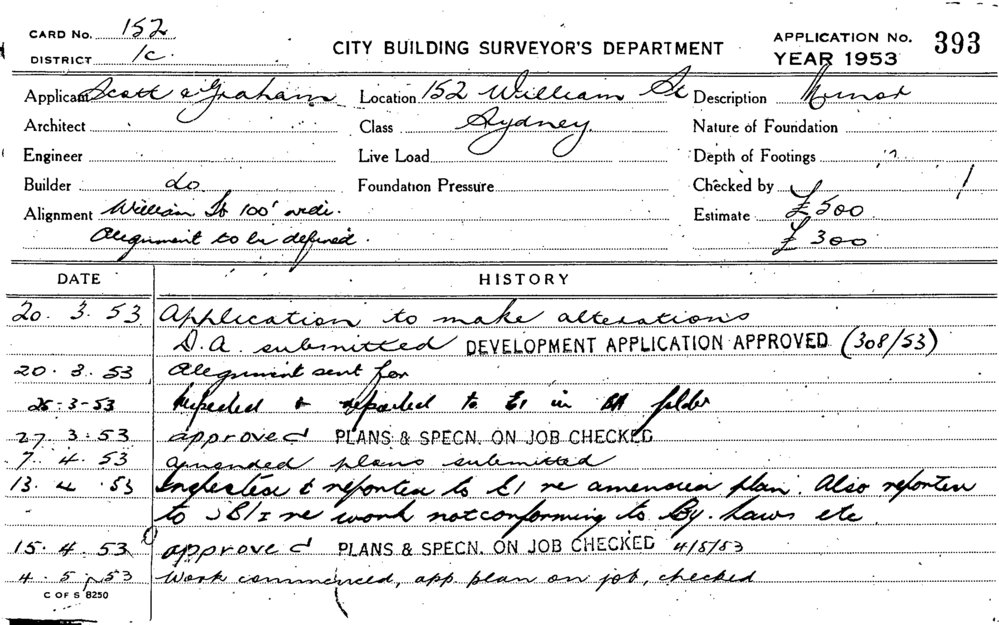 CARD No. 152
DISTRICT 1c.
CITY BUILDING SURVEYOR'S DEPARTMENT
APPLICATION No. 393
YEAR 1953
Applicant Scott & Graham Location 152 William St Description Minor
Architect Class Sydney. Nature of Foundation
Engineer Live Load Depth of Footings
Builder do Foundation Pressure Checked by
Alignment William St 100' wide. Estimate £500
Alignment to be defined. £300
DATE HISTORY
20. 3. 53 Application to make alterations
D.A. submitted DEVELOPMENT APPLICATION APPROVED (308/53)
20. 3. 53 Alignment sent for
26-3-53 Inspected & reported to E1 in BA folder
27. 3. 53 approved PLANS & SPECN. ON JOB CHECKED
7. 4. 53 amended plans submitted
13. 4. 53 Inspected & reported to E1 re amended plan. Also reported
to re work not conforming to By. Laws etc
15. 4. 53 approved PLANS & SPECN. ON JOB CHECKED 4/5/53
4. 5. 53 Work commenced, app. plan on job, checked
C OF S 8250